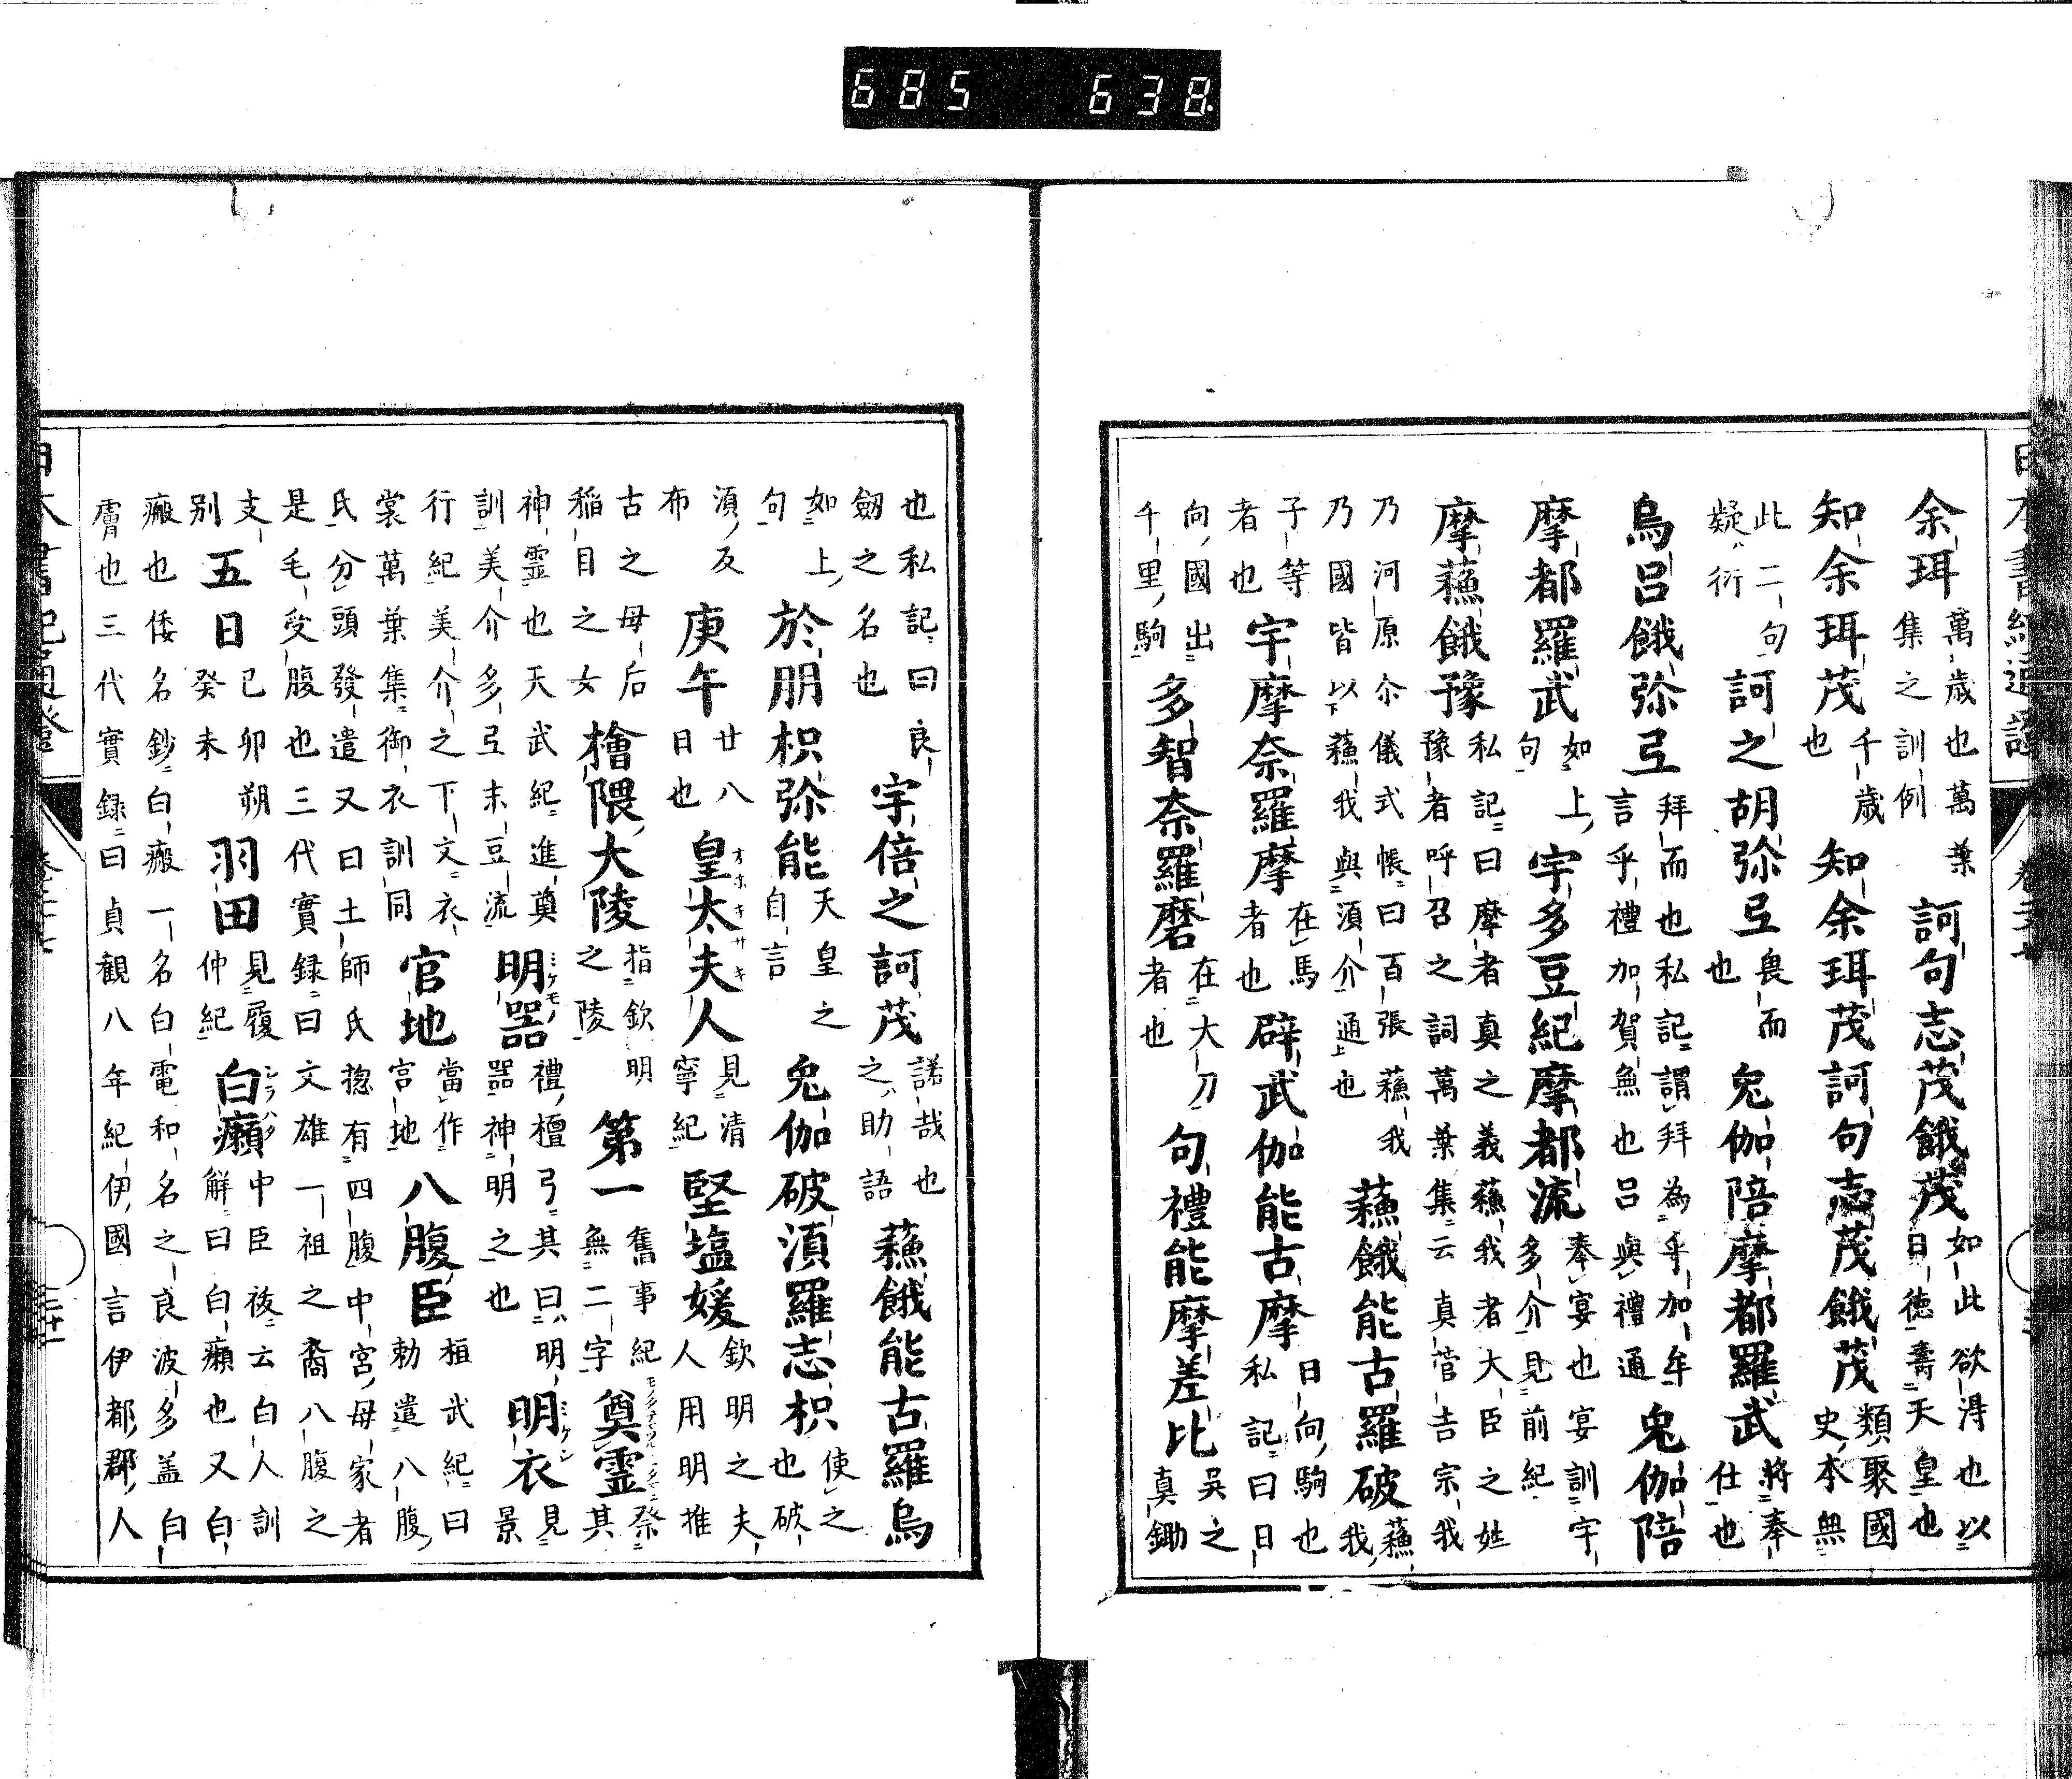 余珥萬歳也萬葉集之訓例訶句志茂餓茂如此欲得也以日徳壽天皇也
知余珥茂千歳也知余珥茂訶句志茂餓茂類聚國史本無
此二句疑衍訶之胡弥弖畏而也兔伽陪摩都羅武將奉仕也
烏呂餓弥弖拜而也私記謂拜為乎加牟言乎禮加賀無也呂與禮通兔伽陪
摩都羅武如上句宇多豆紀摩都流奉宴也宴訓宇多介見前紀
摩蘓餓豫私記曰摩者真之義蘓我者大臣之姓豫者呼召之詞萬葉集云真菅吉宗我
乃河原尒儀式帳曰百張蘓我乃國皆以下蘓我與湏介通上也蘓餓能古羅破蘓我
子等者也宇摩奈羅摩在馬者也辟武伽能古摩日向駒也私記曰日
向國出千里駒多智奈羅磨在大刀者也句禮能摩差比吳之真鋤
也私記曰良劒之名也宇倍之訶茂諾哉也之助語蘓餓能古羅烏
如上句於朋枳弥能天皇之自言兔伽破湏羅志枳使之也破
湏反布庚午廿八日也皇太夫人オホキサキ見清寧紀堅塩媛欽明之夫人用明推
古之母后稲目之女檜隈大陵指欽明之陵第一舊事紀無二字奠霊祭其
神霊也天武紀進奠訓美介多弖末豆流明器ミケモノ禮檀弓其曰明器神明之也明衣ミケシ見景
行紀美介之下文衣裳萬葉集御衣訓同官地當作宮地八腹臣桓武紀曰勅遣八腹
氏分頭發遣又曰土師氏揔有四腹中宮母家者是毛受腹也三代實録曰文雄一祖之裔八腹之
支別五日己卯朔癸未羽田見履仲紀白癩シラハタ中臣祓云白人訓解曰白癩也又白
癜也倭名鈔白癜一名白電和名之良波多盖白膚也三代實録曰貞観八年紀伊國言伊都郡人
685 638